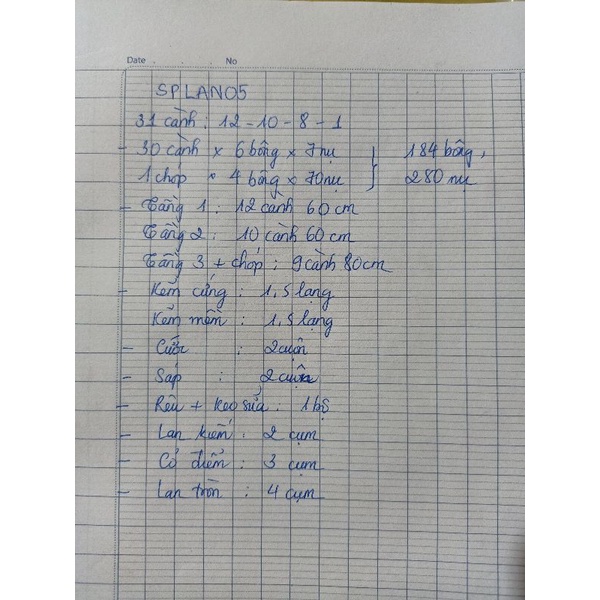 Date . . . No
SPLAN05
31 cành : 12 - 10 - 8 - 1
- 30 cành x 6 bông x 7 nụ } 184 bông,
1 chóp x 4 bông x 70 nụ } 280 nụ
- Tầng 1 : 12 cành 60 cm
Tầng 2 : 10 cành 60 cm
Tầng 3 + chóp : 9 cành 80 cm
- Kẽm cứng : 1,5 lạng
Kẽm mềm : 1,5 lạng
- Cước : 2 cuộn
- Sáp : 2 cuộn
- Rêu + keo sữa : 1 bộ
- Lan kiếm : 2 cụm
- Cỏ điểm : 3 cụm
- Lan tròn : 4 cụm